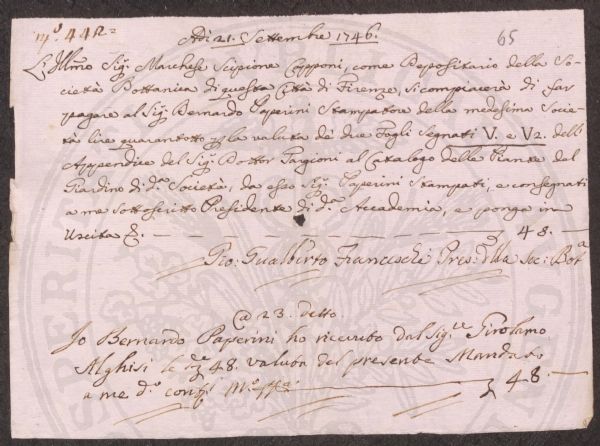 Mo 442=
Adi 21. Settembre 1746.
65
L'Illmo Sigr Marchese Scipione Capponi, come Depositario della So-
cietà Bottanica di questa Città di Firenze, si compiacerà di far
pagare al Sigr Bernardo Paperini Stampatore della medesima Socie-
tà lire quarantotto per la valuta de due Fogli Segnati V. e V2. dell'
Appendice del Sigr Dottor Targioni al Catalogo delle Piante del
Giardino di da Società, da esso Sigr Paperini Stampati, e consegnati
a me sottoscritto Presidente di da Accademia, e ponga in
Uscita £. — 48. —
Gio: Gualberto Franceschi Pres: dlla Soc: Bota
@ 23. detto.
Io Bernardo Paperini ho ricevuto dal Sigre Girolamo
Alghisi le £ 48. valuta del presente Mandato
a me do conti — £ 48 —